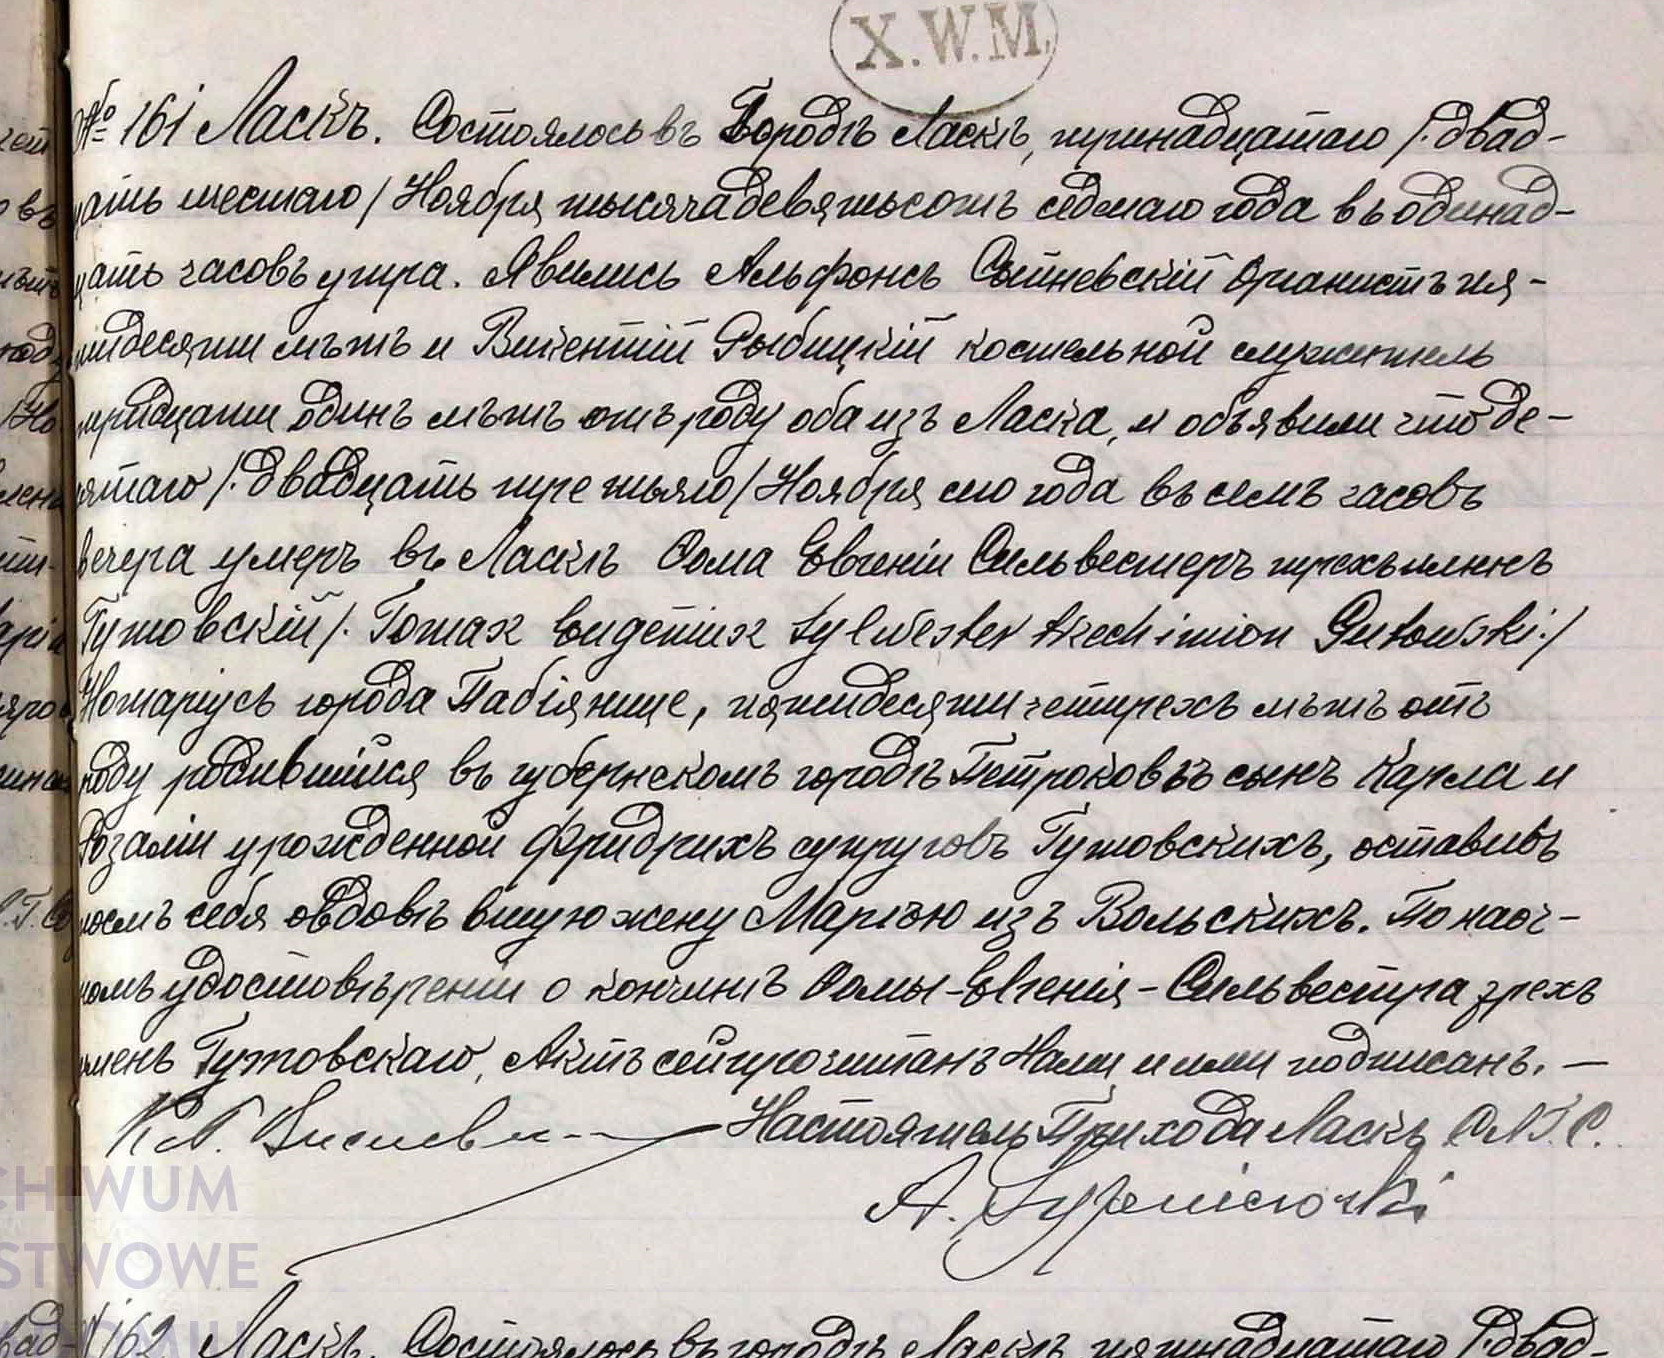 X.W.M.
№ 161 Ласкъ. Состоялось въ Городѣ Ласкѣ, тринадцатаго /: двад-
цать шестаго / Ноября тысяча девятьсотъ седмаго года въ одинад-
цать часовъ утра. Явились Альфонсъ Сытневскій Органистъ пя-
тидесяти лѣтъ и Викентій Рыбицкій костельной служитель
тридцати одинъ лѣтъ отъ роду оба изъ Ласка, и объявили что де-
вятаго /: двадцать третьяго / Ноября сего года въ семъ часовъ
вечера умеръ въ Ласкѣ Ѳома Евгеніи Сильвестеръ трехъ именъ
Гутовскій /: Tomasz Eugeniusz Sylwester trzech imion Gutowski :/
Нотаріусъ города Пабіянице, пятидесяти четырехъ лѣтъ отъ
роду родившійся въ губернскомъ городѣ Петроковѣ сынъ Карла и
Розаліи урожденной Фридрихъ супруговъ Гутовскихъ, оставивъ
послѣ себя овдовѣвшую жену Марію изъ Вольскихъ. По наоч-
номъ удостовѣреніи о кончинѣ Ѳомы-Евгенія-Сильвестра трехъ
именъ Гутовскаго, Актъ сей прочитанъ Нами и ими подписанъ. —
Настоятель Прихода Ласкъ С.П.Г.С.
A.
CHIWUM
STWOWE
162. Ласкъ. Состоялось въ городѣ Ласкѣ пятнадцатаго /: двад-